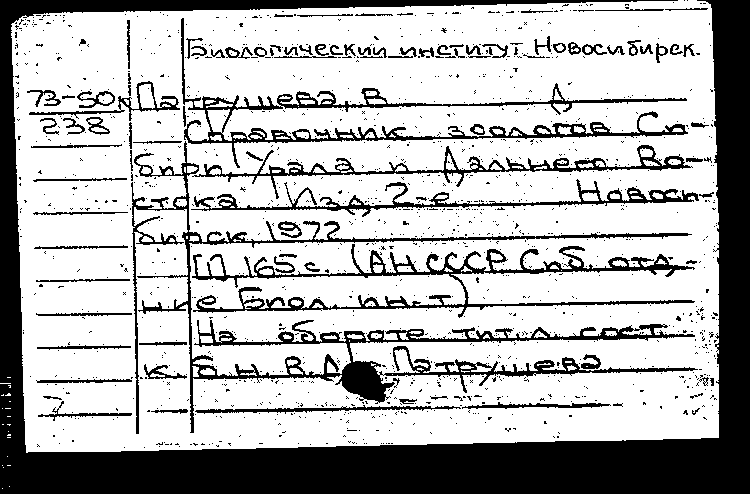 Биологический институт. Новосибирск.
73-50к Патрушева, В Д
238 Справочник зоологов Си-
бири, Урала и Дальнего Во-
стока. Изд. 2-е Новоси-
бирск, 1972
165 с. (АН СССР Сиб. отд-
ние Биол. ин-т).
На обороте тит. л. сост.
к. б. н. В. Д. Патрушева